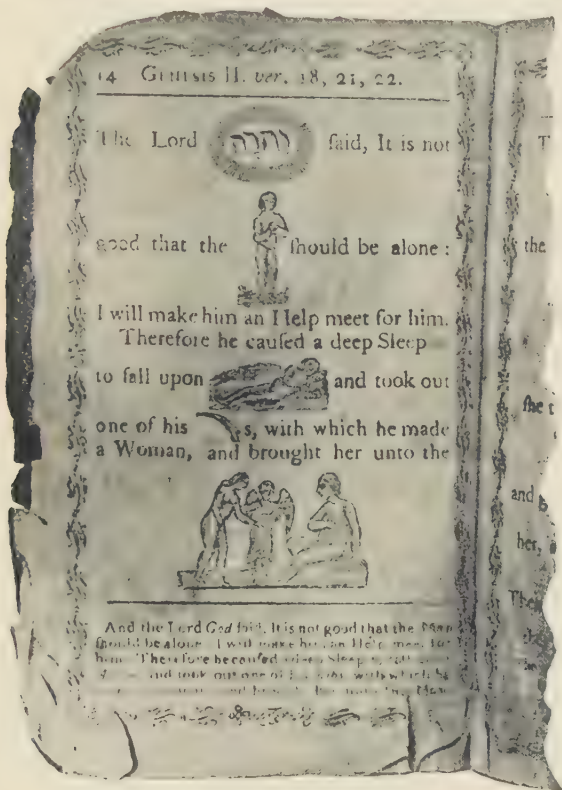 14 GENESIS II. ver. 18, 21, 22.
The Lord יהוה ſaid, It is not
good that the ſhould be alone :
I will make him an Help meet for him.
Therefore he cauſed a deep Sleep
to fall upon and took out
one of his s, with which he made
a Woman, and brought her unto the
And the Lord God ſaid, It is not good that the Man
ſhould be alone. I will make him an Help meet for
him. Therefore he cauſed a deep Sleep to fall
and took out one of his with which he
Man
T
the
ſhe t
and
her,